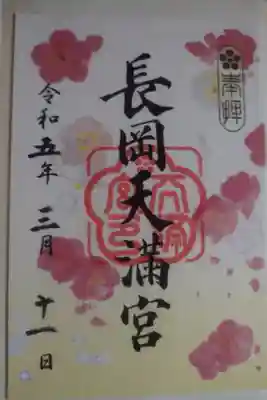 奉拝
長岡天満宮
令和五年三月十一日